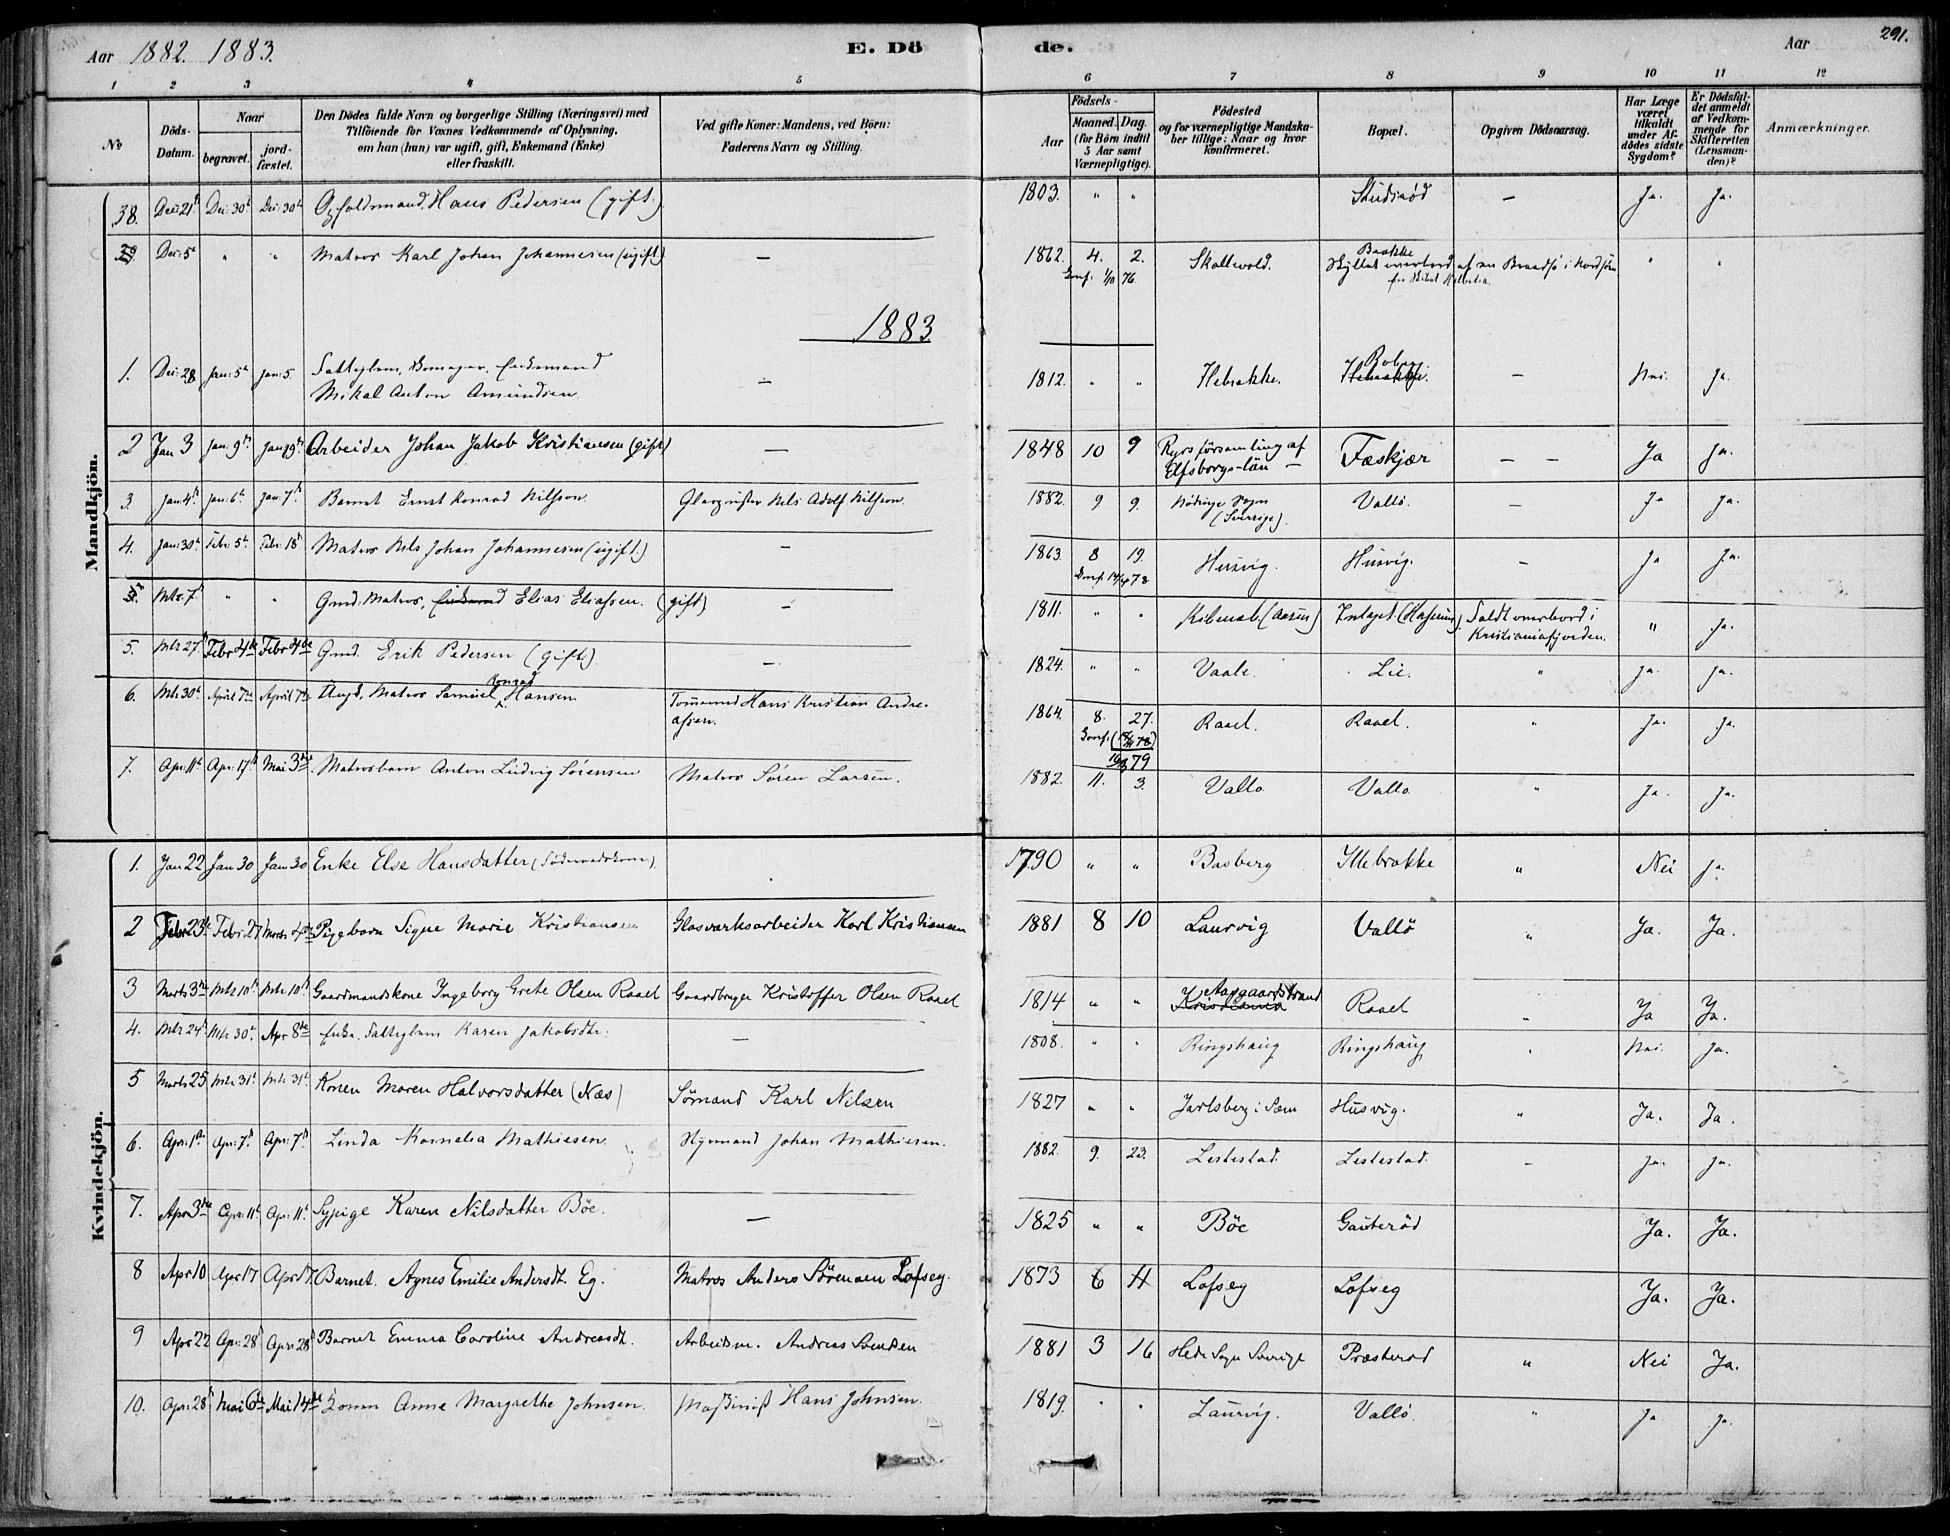 Aar 1882. 1883. E. Dö de. Aar 291.
1 2 3 4 5 6 7 8 9 10 11 12
No
Döds-Datum.
Naar
begravet.
jord-fæstet.
Den Dödes fulde Navn og borgerlige Stilling (Næringsvei) med
Tilföiende for Voxnes Vedkommende af Oplysning,
om han (hun) var ugift, gift, Enkemand (Enke)
eller fraskilt.
Ved gifte Koner: Mandens, ved Börn:
Faderens Navn og Stilling.
Födsels-
Aar
Maaned. Dag.
(for Börn indtil
5 Aar samt
Værnepligtige).
Födested
og for værnepligtige Mandska-
ber tillige: Naar og hvor
konfirmeret.
Bopæl.
Opgiven Dödsaarsag.
Har Læge
været
tilkaldt
under Af-
dödes sidste
Sygdom?
Er Dödsfal-
det anmeldt
af Vedkom-
mende for
Skifteretten
(Lensman-
den)?
Anmærkninger.
Mandkjön.
38. Dec: 21 Dec: 30 Dec: 30 Hans Pedersen (gift.) 1803. " " — Ja. Ja.
39. Dec: 5 " " Matros Karl Johan Johannesen (ugift) — 1862. 4. 2. Skallevold. Bakke
Konf. 1/10 76. i Nordsöen
1883.
1. Dec: 28 Jan: 5 Jan: 5.
Mikal Anton Amundsen — 1812. " " Ilebrekke. — Nei. Ja.
2 Jan 3 Jan: 9 Jan: 9 Arbeider Johan Jakob Kristiansen (gift) — 1848 10 9 Ryrsförsamling af
Elfsborgs-län — Fæskjær — — Ja Ja.
3. Jan: 4 Jan: 6 Jan: 7 Barnet Ernst Konrad Nilsson. Nils Adolf Nilsson. 1882. 9 9. Nödinge Sogn
(Sverrige). Vallö. — Ja Ja.
4. Jan: 30 Febr: 5 Febr: 18 Matros Nils Johan Johannesen (ugift.) — 1863. 8 19. Husvig. Husvig. — Ja Ja.
Mts: 7. " " Gmd. Matros, Elias Eliassen. (gift) — 1811. " " Faldt overbord i
Kristianiafjorden. " Ja.
5. Mts 27. Febr 4de Febr 4de Gmd. Erik Pedersen (gift) — 1824. " " Vaale. Lie. " Ja. Ja.
6. Mts 30 April 7de April 7de Ungk. Matros Samuel Konrad Hansen Tömmermd Hans Kristian Andre-
assen. 1864. 8. 27. Raael. Raael. " Ja. Ja.
7. Apr: 11 Apr: 17 Mai 3die Matrosbarn Anton Ludvig Sörensen Matros Sören Larsen. 1882. 11. 3. Vallo Vallo " Ja. Ja.
Kvindekjön.
1. Jan 22 Jan 30 Jan 30 Enke Else Hansdatter 1790 " " Basberg Illebrekke " Nei Ja.
2 Febr 23 Febr: 27 Marts 4de Pigebarn Signe Marie Kristiansen Glasværksarbeider Karl Kristiansen 1881 8 10 Laurvig Vallö " Ja. Ja.
3 Marts 3die Mts 10 Mts 10 Gaardmandskone Ingeborg Grete Olsen Raael Gaardbruger Kristoffer Olsen Raael 1814 " " Aasgaardstrand
Kristiania Raael " Ja Ja.
4. Mts 24 Mts 30 Apr 8de Enke. Fattiglem Karen Jakobsdtr. — 1808. " " Ringshaug Ringshaug " Nei. Ja.
5 Marts 25 Mts 31 Mts 31 Konen Maren Halvorsdatter (Næs) Sömand Karl Nilsen 1827 " " Jarlsberg i Sem Husvig. " Ja. Ja.
6. Apr: 1ste Apr: 7 Apr: 7 Linda Kornelia Mathiesen. Johan Mathiesen. 1882. 9. 23. Lestestad. Lestestad. — Ja. Ja.
7. Apr 3die Apr: 11 Apr: 11 Sypige Karen Nilsdatter Böe. — 1825 " " Böe Gauterød Ja. Ja.
8 Apr 10 Apr 17 Apr 17 Barnet. Agnes Emilie Andersdt. Eg. Matros Anders Sörensen Lofseg. 1873 6 4 Lofseg Lofseg Ja. Ja.
9 Apr 22 Apr: 28 Apr: 28 Barnet Emma Caroline Andreasdt. Arbeidsm. Andreas Svendsen 1881 3 16 Hede Sogn Sverige Præsterød " Nei Ja.
10. Apr: 28 Mai 6te Mai 14de Konen Anne Margrethe Johnsen. Maskinist Hans Johnsen. 1819. " " Laurvig. Vallö. " Ja Ja.